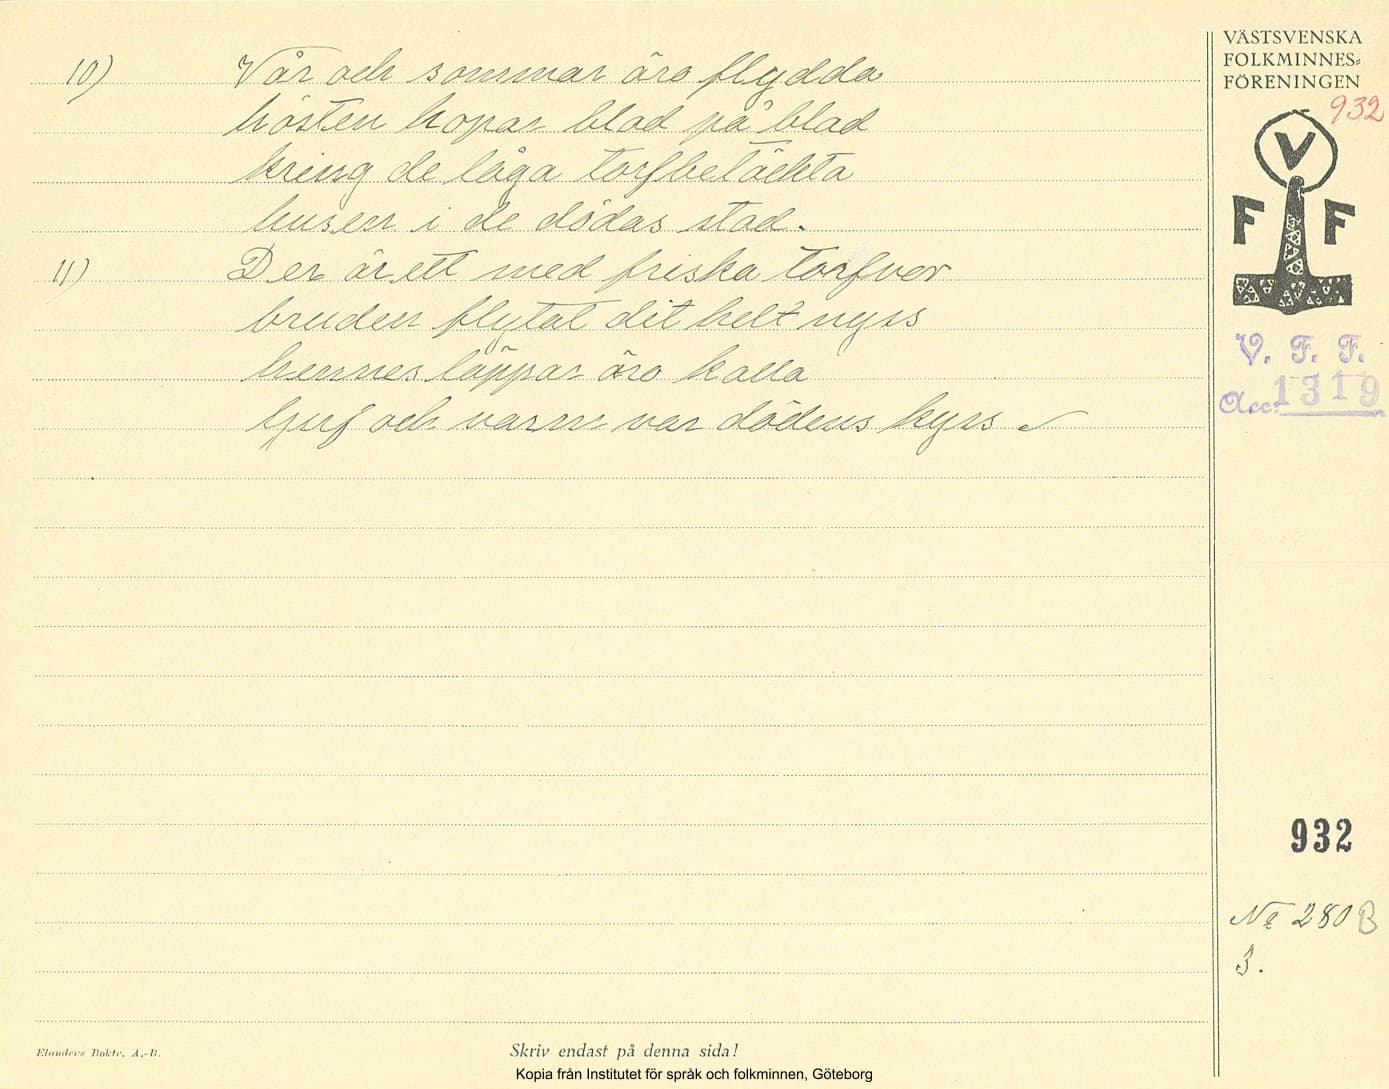 10) Vår och sommar äro flydda
hösten hopar blad på blad
kring de låga torfbetäckta
husen i de dödas stad.
11) Der är ett med friska torfver
bruden flytat dit helt nyss
hennes läppar äro kalla
ljuf och varm var dödens kyss.
VÄSTSVENSKA
FOLKMINNES=
FÖRENINGEN
932
V
F F
V. F. F.
Acc. 1319
932
No 280 B
3.
Elanders Boktr. A.-B.
Skriv endast på denna sida!
Kopia från Institutet för språk och folkminnen, Göteborg